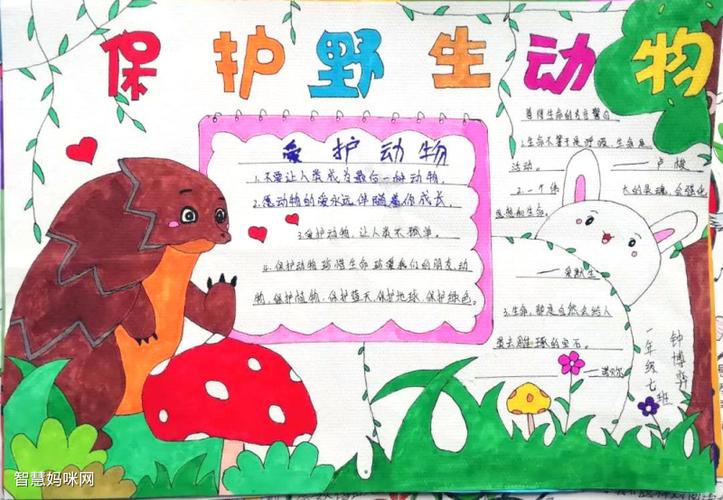 保护野生动物
爱护动物
1.不要让人类成为最后一种动物.
2.愿动物的爱永远伴随着你成长.
3.爱护动物,让人类不孤单.
4.保护动物 珍惜生命 珍爱我们的朋友,动
物,保护植物,保护蓝天,保护地球,保护绿色.
善待生命的名言警句
1.生命不等于是呼吸,生命是
活动。——卢梭
2.一个伟大的灵魂,会强化
思想和生命
——爱默生
3.生命,那是自然会给人
类去雕琢的宝石。
——诺贝尔
一年级七班
钟博
智慧妈咪网